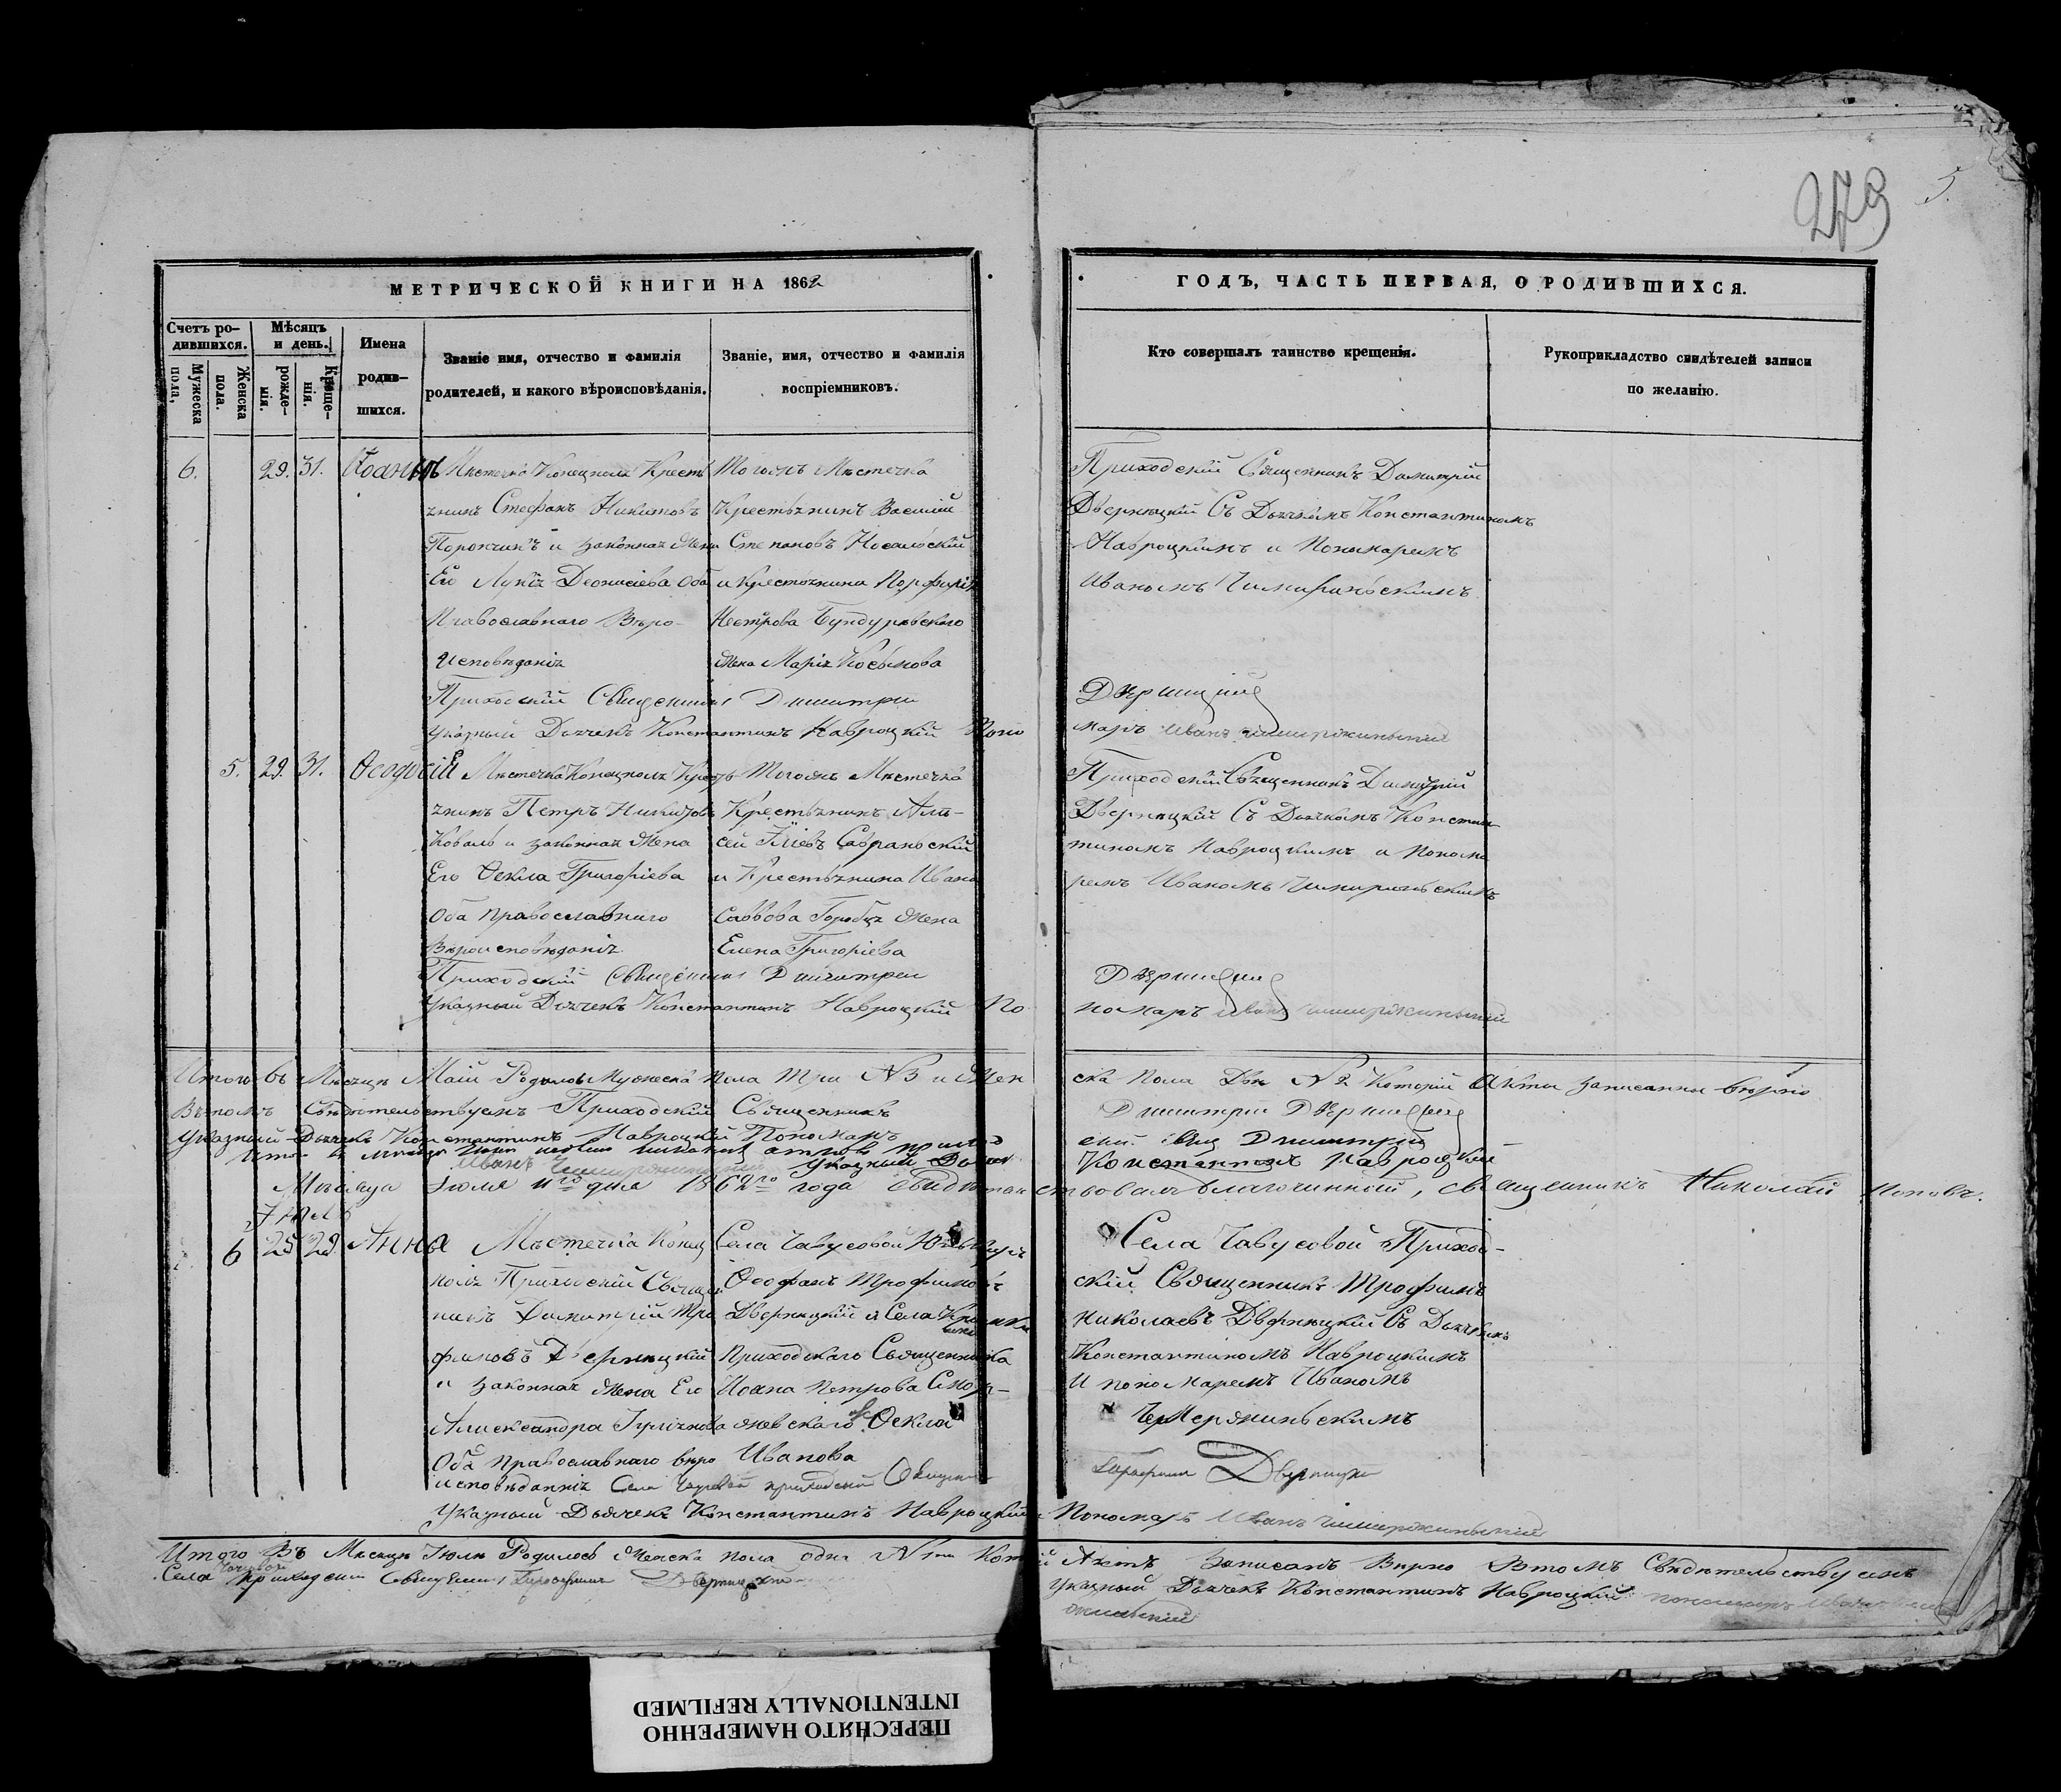 279 5.
МЕТРИЧЕСКОЙ КНИГИ НА 1862
ГОДЪ, ЧАСТЬ ПЕРВАЯ, О РОДИВШИХСЯ.
Счетъ ро-
дившихся.
Мужеска
пола,
Женска
пола.
Мѣсяцъ
и день.
рожде-
нія.
Креще-
нія.
Имена
родив-
шихся.
Званіе имя, отчество и фамилія
родителей, и какого вѣроисповѣданія.
Званіе, имя, отчество и фамилія
воспріемниковъ.
Кто совершалъ таинство крещенія.
Рукоприкладство свидѣтелей записи
по желанію.
6. 29. 31. Іоаннъ
Мѣстечка Конецполя Кресть
янинъ Стефанъ Никитовъ
и законная жена
Его Діонисіева Оба
Православнаго Вѣро-
исповѣданія
Тогожъ Мѣстечка
Крестьянинъ Василій
Степановъ Носальскій
и Крестьянина Порфирія
Нестрова Бундуровского
жена Марія Косьмова
Приходскій Священникъ Димитрій
Дверницкій Съ Дьячкомъ Константиномъ
Навроцкимъ и Пономаремъ
Иваномъ
Приходскій Священникъ Димитрій
Указный Дьячекъ Константинъ Навроцкій Поно
маръ Иванъ
5. 29. 31. Ѳеодосій
Мѣстечка Конецполя Кресть
янинъ Петръ Никитовъ
Коваль и законная жена
Его Ѳекла Григоріева
Оба православнаго
Вѣроисповѣданія
Тогожъ Мѣстечка
Крестьянинъ Алек-
сѣй Савранскій
и Крестьянина Ивана
Саввова Горобца жена
Елена Григоріева
Приходскій Священникъ Димитрій
Дверницкій Съ Дьячкомъ Констан
тиномъ Навроцкимъ и Понома
ремъ Иваномъ
Приходскій Священникъ Димитрій
Указный Дьячекъ Константинъ Навроцкій По
номаръ Иванъ
Итого въ Мѣсяцѣ Маіи Родилось Мужеска пола три №3 и Жен
ска пола Двѣ №2 Которій Акты записанны вѣрно
Въ томъ свидѣтельствуемъ Приходскій Священникъ
Димитрій
Указный Дьячекъ Константинъ Навроцкій Пономаръ
Иванъ Указный Дьячек
Константинъ Навроцкій
Мѣсяца Іюля дня 1862го года свидѣтельствовалъ благочинный, священникъ Николай Поповъ.
Іюль
6 25 29. Анна
Мѣстечка Конец
поля Приходскій Священ
никъ Димитрій Тро
фимовъ Дверницкій
и законная жена Его
Александра
Оба православнаго вѣро
исповѣданія
Села Чаусовой
Ѳеофанъ Трофимовъ
Дверницкій и Села
Приходскаго Священника
Іоана Петрова
Ѳекла
Иванова
Села Чаусовой Приход-
скій Священникъ Трофимъ
Николаевъ Дверницкій Съ Дьячкомъ
Константиномъ Навроцкимъ
И пономаремъ Иваномъ
Дверницкій
Указный Дьячекъ Константинъ Навроцкій Пономаръ Иванъ
Итого Въ Мѣсяцѣ Іюлѣ Родилось Женска пола одна №1
Актъ Записанъ Вѣрно Въ томъ Свидѣтельствуемъ
Села Чаусовой приходскій священникъ Дверницкій
Указный Дьячекъ Константинъ Навроцкій
ПЕРЕСНЯТО НАМЕРЕННО
INTENTIONALLY REFILMED